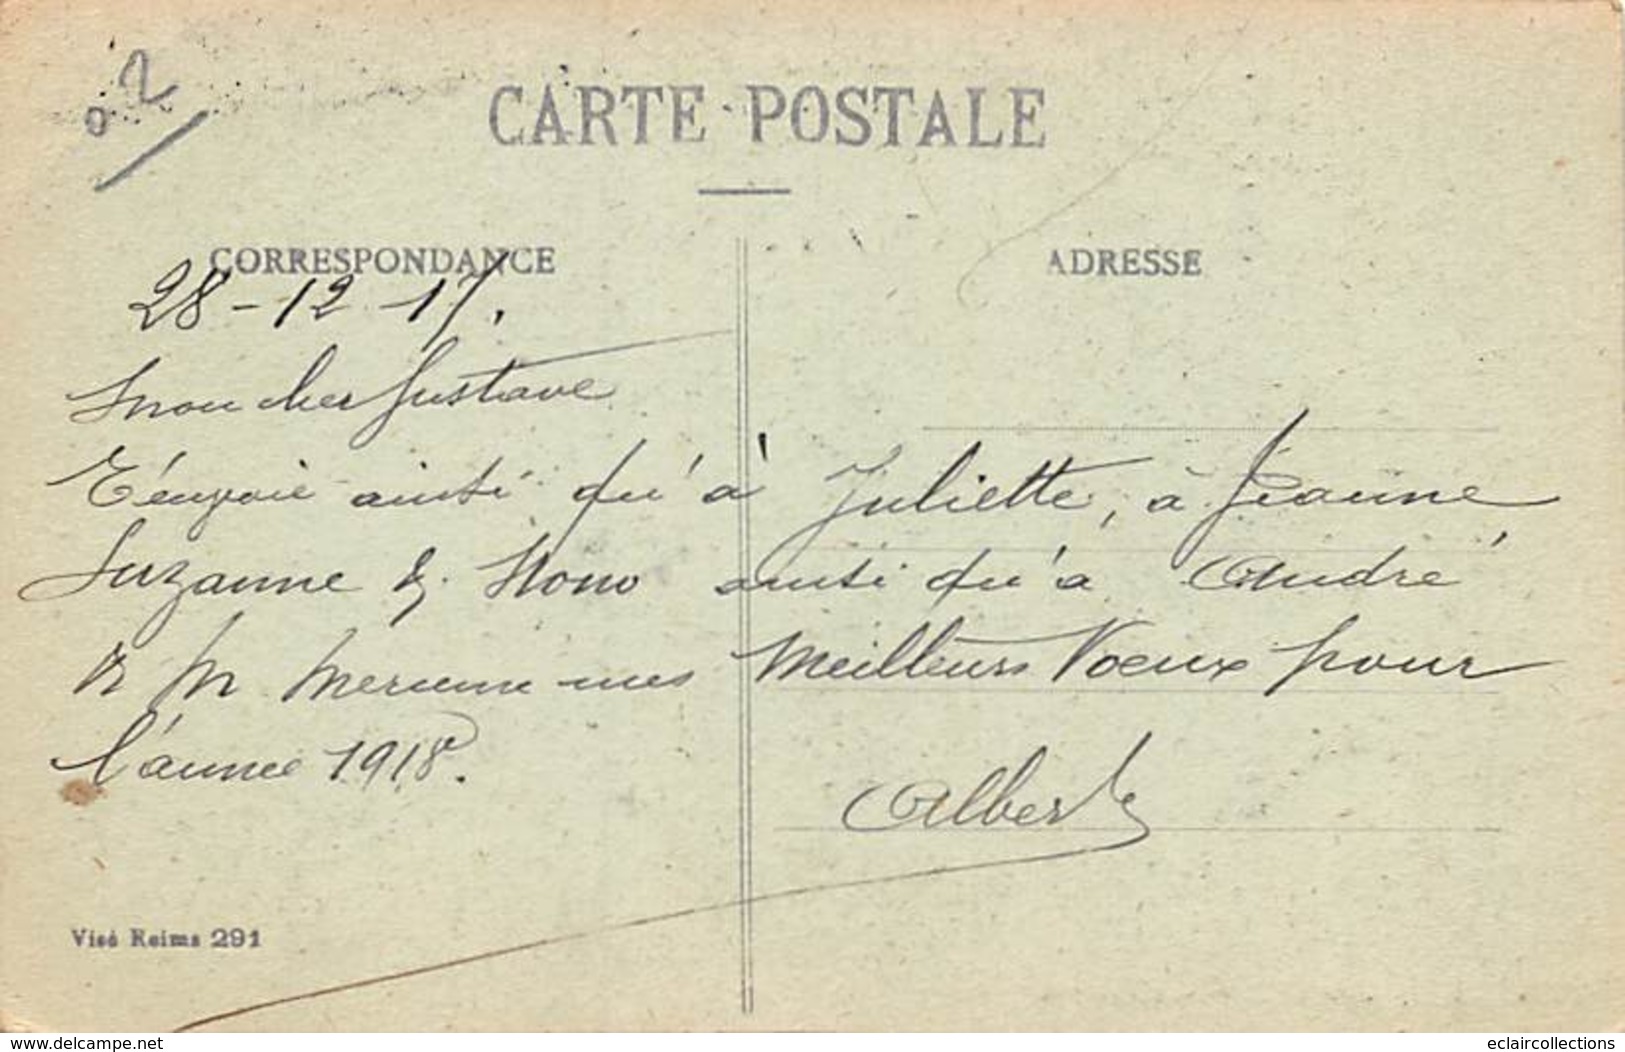 02
CARTE POSTALE
CORRESPONDANCE
ADRESSE
28-12-17.
Mon cher Gustave
T'envoie ainsi qu'à Juliette, à Jeanne,
Suzanne & Nono ainsi qu'à André
& M mes Meilleurs Voeux pour
l'année 1918.
Albert
Visé Reims 291
www.delcampe.net
eclaircollections